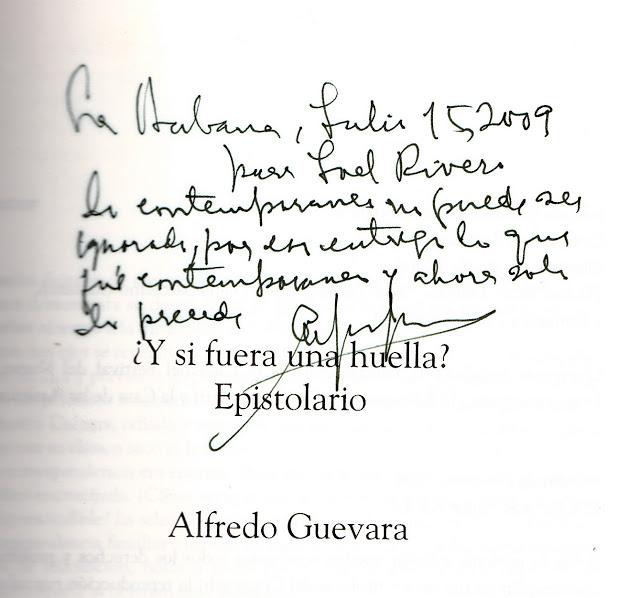 La Habana, Julio 15, 2009
para Joel Rivero
lo contemporaneo no puede ser
ignorado, por eso entrego lo que
fué contemporaneo y ahora solo
lo precede
¿Y si fuera una huella?
Epistolario
Alfredo Guevara